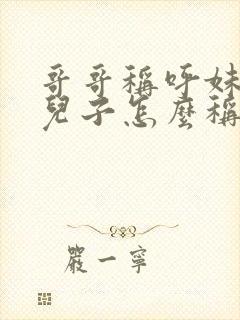 哥哥稱呼妹
兒子怎麼稱
嚴一寧